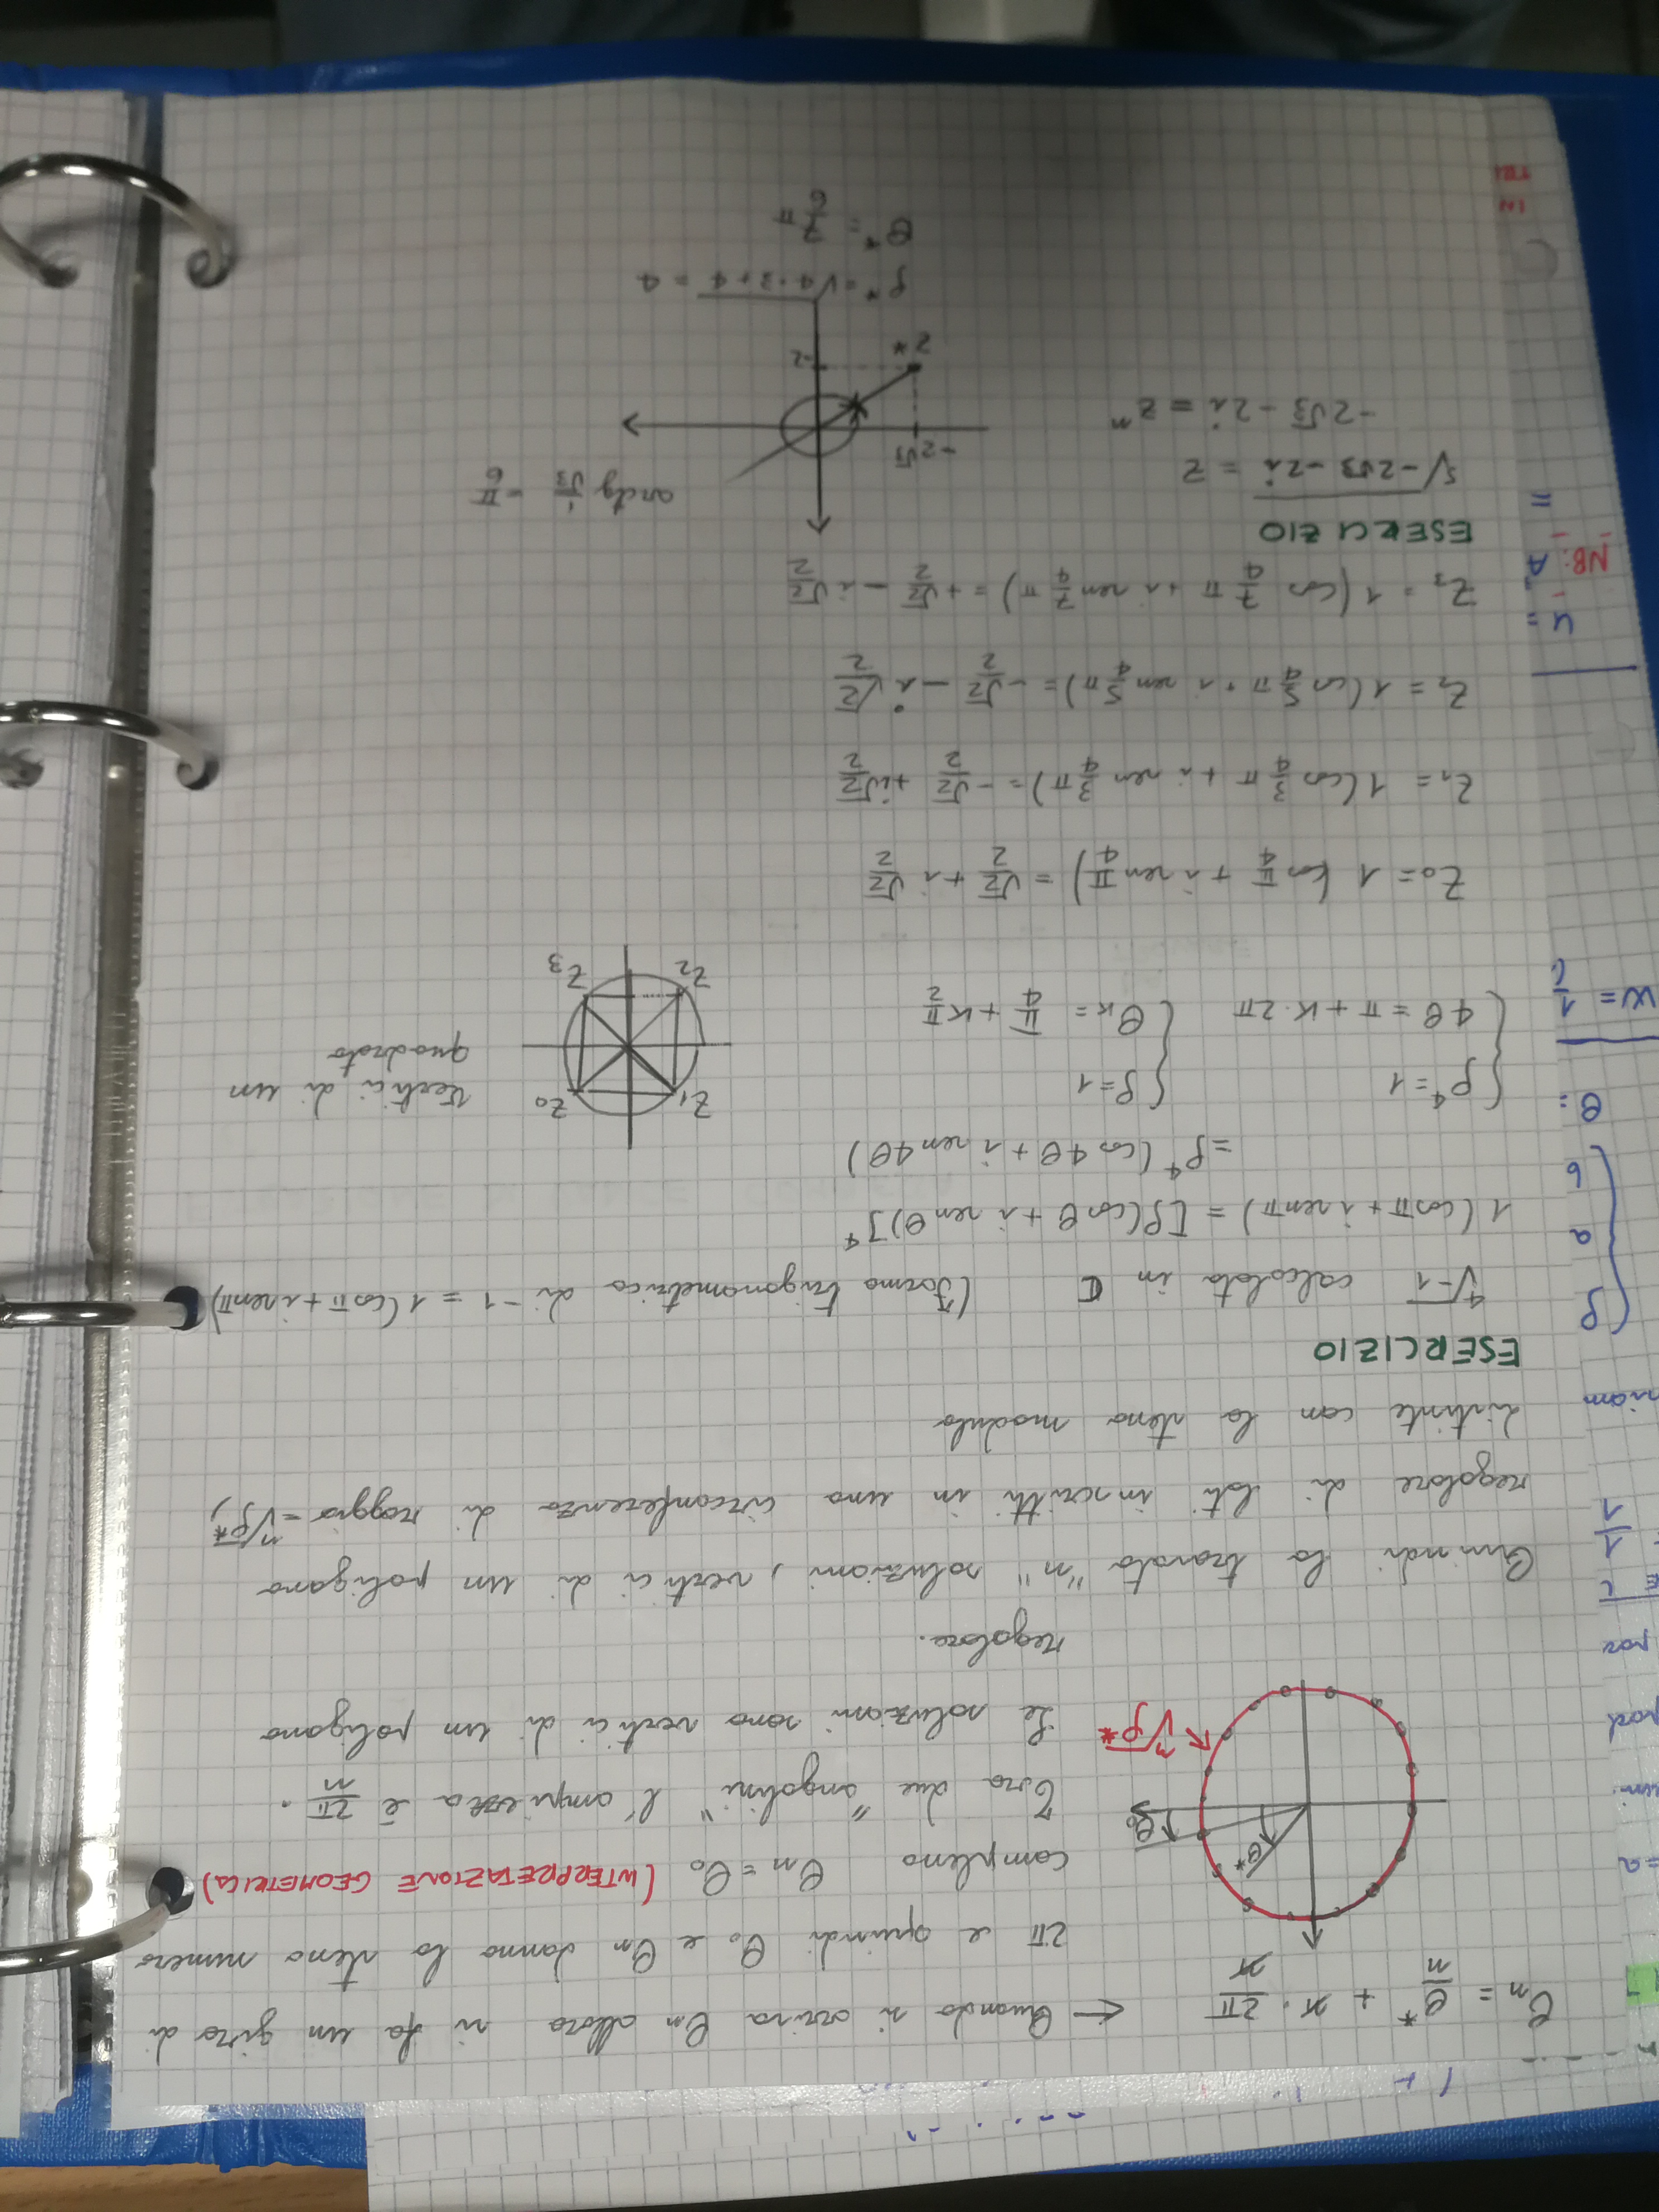 θn = θ*/n + n · 2π/n ← Quando si arriva θn allora si fa un giro di
2π e quindi θ0 e θn danno lo stesso numero
complesso θn = θ0 (INTERPRETAZIONE GEOMETRICA)
θ* θ0
Tra due "angolini" l'ampiezza è 2π/n .
ⁿ√ρ*
Le soluzioni sono vertici di un poligono
regolare.
Quindi ho trovato "n" soluzioni, vertici di un poligono
regolare di lati inscritti in una circonferenza di raggio = ⁿ√ρ*,
distinte con lo stesso modulo
ESERCIZIO
⁴√-1 calcolata in ℂ (Forma trigonometrica di -1 = 1(cosπ + i senπ)
1(cosπ + i senπ) = [ρ(cosθ + i senθ)]⁴
= ρ⁴ (cos4θ + i sen4θ)
{ ρ⁴ = 1 { ρ = 1
4θ = π + K·2π θK = π/4 + K π/2
Z1 Z0
Z2 Z3
Vertici di un
quadrato
Z0 = 1 (cos π/4 + i sen π/4) = √2/2 + i √2/2
Z1 = 1(cos 3/4 π + i sen 3/4 π) = -√2/2 + i√2/2
Z2 = 1(cos 5/4 π + i sen 5/4 π) = -√2/2 - i √2/2
Z3 = 1(cos 7/4 π + i sen 7/4 π) = +√2/2 - i √2/2
ESERCIZIO
⁵√-2√3 - 2i = z
-2√3 - 2i = zⁿ
arctg 1/√3 = π/6
-2√3
-2
z*
ρ* = √4·3+4 = 4
θ* = 7/6 π
= a
uni.
por
1/1
{ ρ
a
b
θ:
W = 1/
u =
NB: A
=
IN
TRI